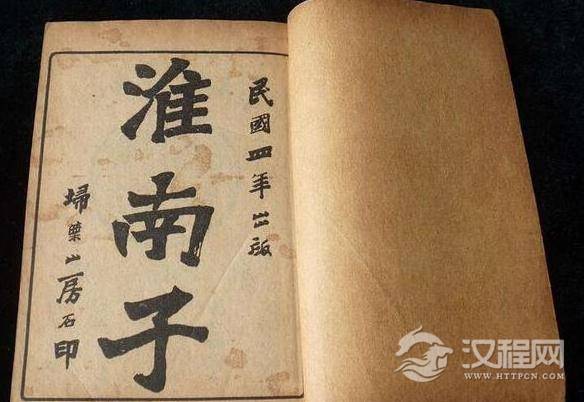 民國四年出版
淮南子
埽葉山房石印
汉程网
WWW.HTTPCN.COM